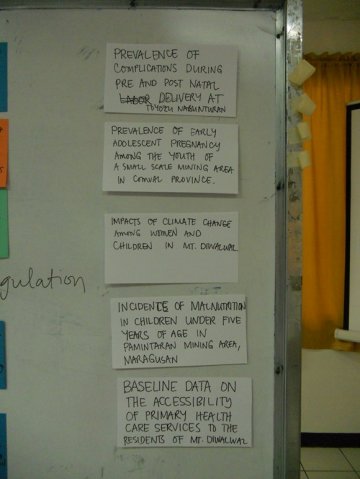 PREVALENCE OF
COMPLICATIONS DURING
PRE AND POST NATAL
LABOR DELIVERY AT
TOYOZU NABUNTURAN
PREVALENCE OF EARLY
ADOLESCENT PREGNANCY
AMONG THE YOUTH OF
A SMALL SCALE MINING AREA
IN COMVAL PROVINCE.
IMPACTS OF CLIMATE CHANGE
AMONG WOMEN AND
CHILDREN IN MT. DIWALWAL
gulation
INCIDENTS OF MALNUTRITION
IN CHILDREN UNDER FIVE
YEARS OF AGE IN
PAMINTARAN MINING AREA,
MARAGUSAN
BASELINE DATA ON
THE ACCESSIBILITY
OF PRIMARY HEALTH
CARE SERVICES TO THE
RESIDENTS OF MT. DIWALWAL